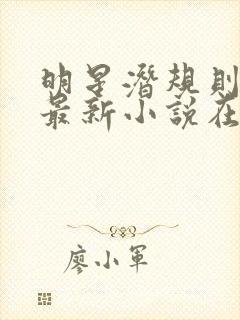 明星潛規則
最新小說在
廖小軍